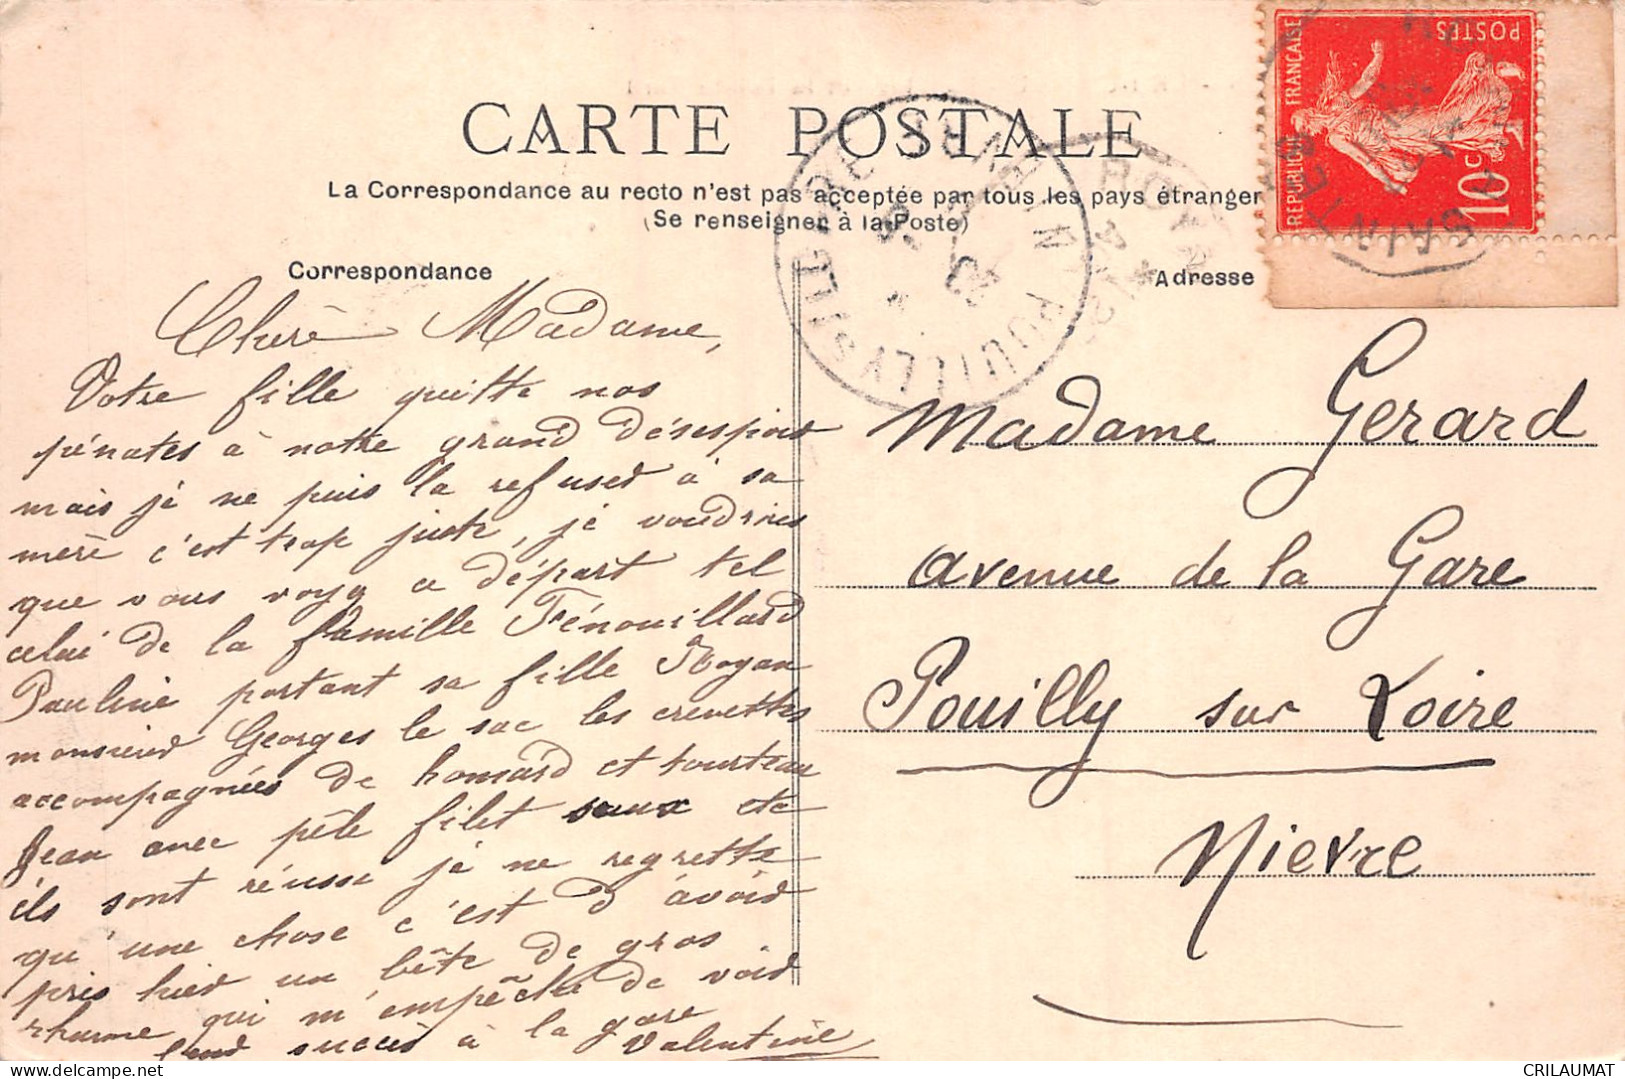 CARTE POSTALE
La Correspondance au recto n'est pas acceptée par tous les pays étranger
(Se renseigner à la Poste)
Correspondance
Adresse
RÉPUBLIQUE FRANÇAISE
POSTES
10c
POUILLY S
Cherè Madame,
Votre fille quitte nos
pénates à notre grand désespoir
mais jé ne puis la refuser à sa
merè c'est trop juste, jé voudrais
que vous voyg a départ tel
celui de la famille Fénouillard
Pauline portant sa fille Royan
monsieur Georges le sac les crevettes
accompagnées de homard et tourteau
Jean avec pêle filet seaux etc
ils sont réussi jé ne regrette
qu'une chose c'est d'avoir
pris hier un bête de gros
rhume qui m'empêche de voir
leur succès à la gare
Valentine
Madame Gerard
avenue de la Gare
Pouilly sur Loire
Nievre
CRILAUMAT